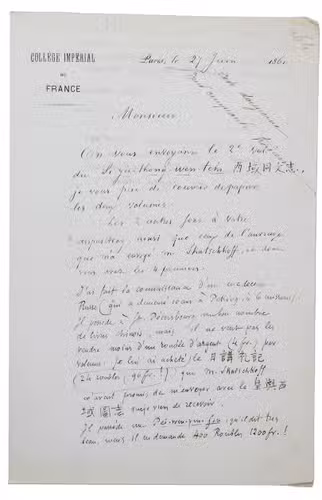 COLLÈGE IMPÉRIAL
DE
FRANCE
Paris, le 27 Juin 186
Monsieur
En vous envoyant le 2e vol.
du Si yu thong wen tchi 西域同文志,
je vous prie de couvrir de papier
les deux volumes.
Les 2 autres sont à votre
disposition, ainsi que ceux de l'ouvrage
que m'a envoyé M. Skatschkoff, et dont
vous avez les 4 premiers.
J'ai fait la connaissance d'un
Russe (qui a demeuré 10 ans à Péking, à la mission).
Il possède à St. Pétersbourg un bon nombre
de livres chinois, mais il ne veut pas les
vendre moins d'un rouble d'argent (4 fr.) par
volume. Je lui ai acheté le 日講礼記
(24 roubles, 96 fr.!) que M. Skatschkoff
m'avait promis de m'envoyer avec le 皇輿西
域圖志 que je viens de recevoir.
Il possède un Peï-wen-yun-fou, qu'il dit très
beau, mais il en demande 400 Roubles, 1200 fr.!